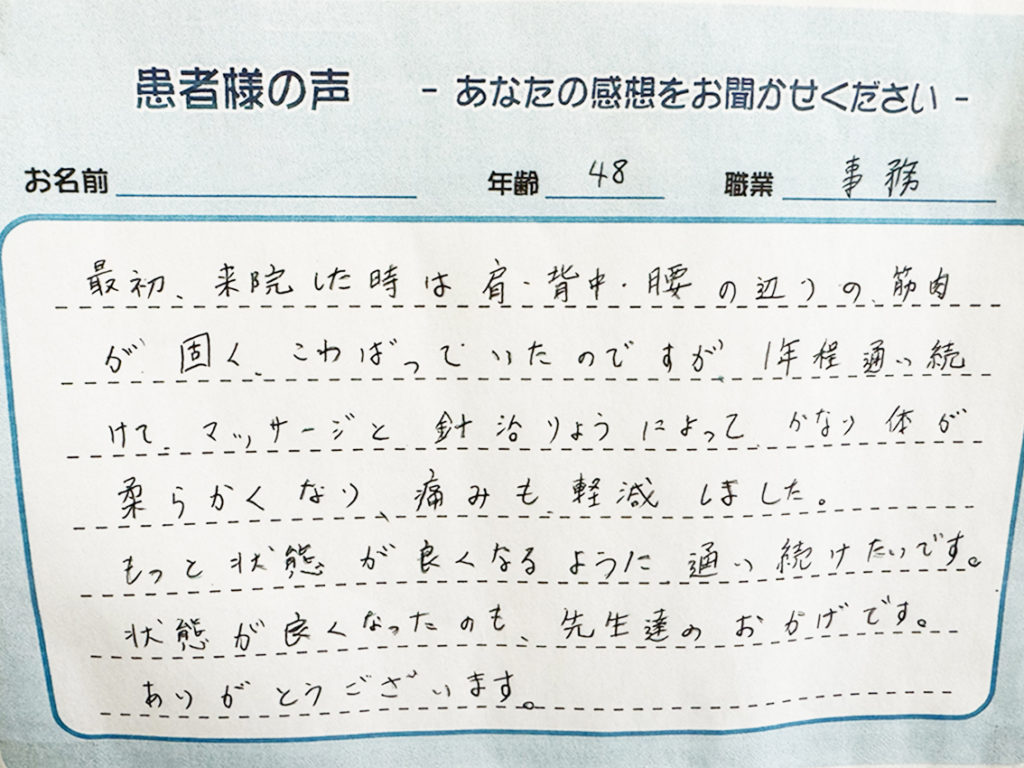 患者様の声 - あなたの感想をお聞かせください -
お名前 年齢 48 職業 事務
最初、来院した時は肩・背中・腰の辺りの筋肉
が固く、こわばっていたのですが、1年程通い続
けて、マッサージと針治りょうによって、かなり体が
柔らかくなり、痛みも軽減しました。
もっと状態が良くなるように通い続けたいです。
状態が良くなったのも、先生達のおかげです。
ありがとうございます。